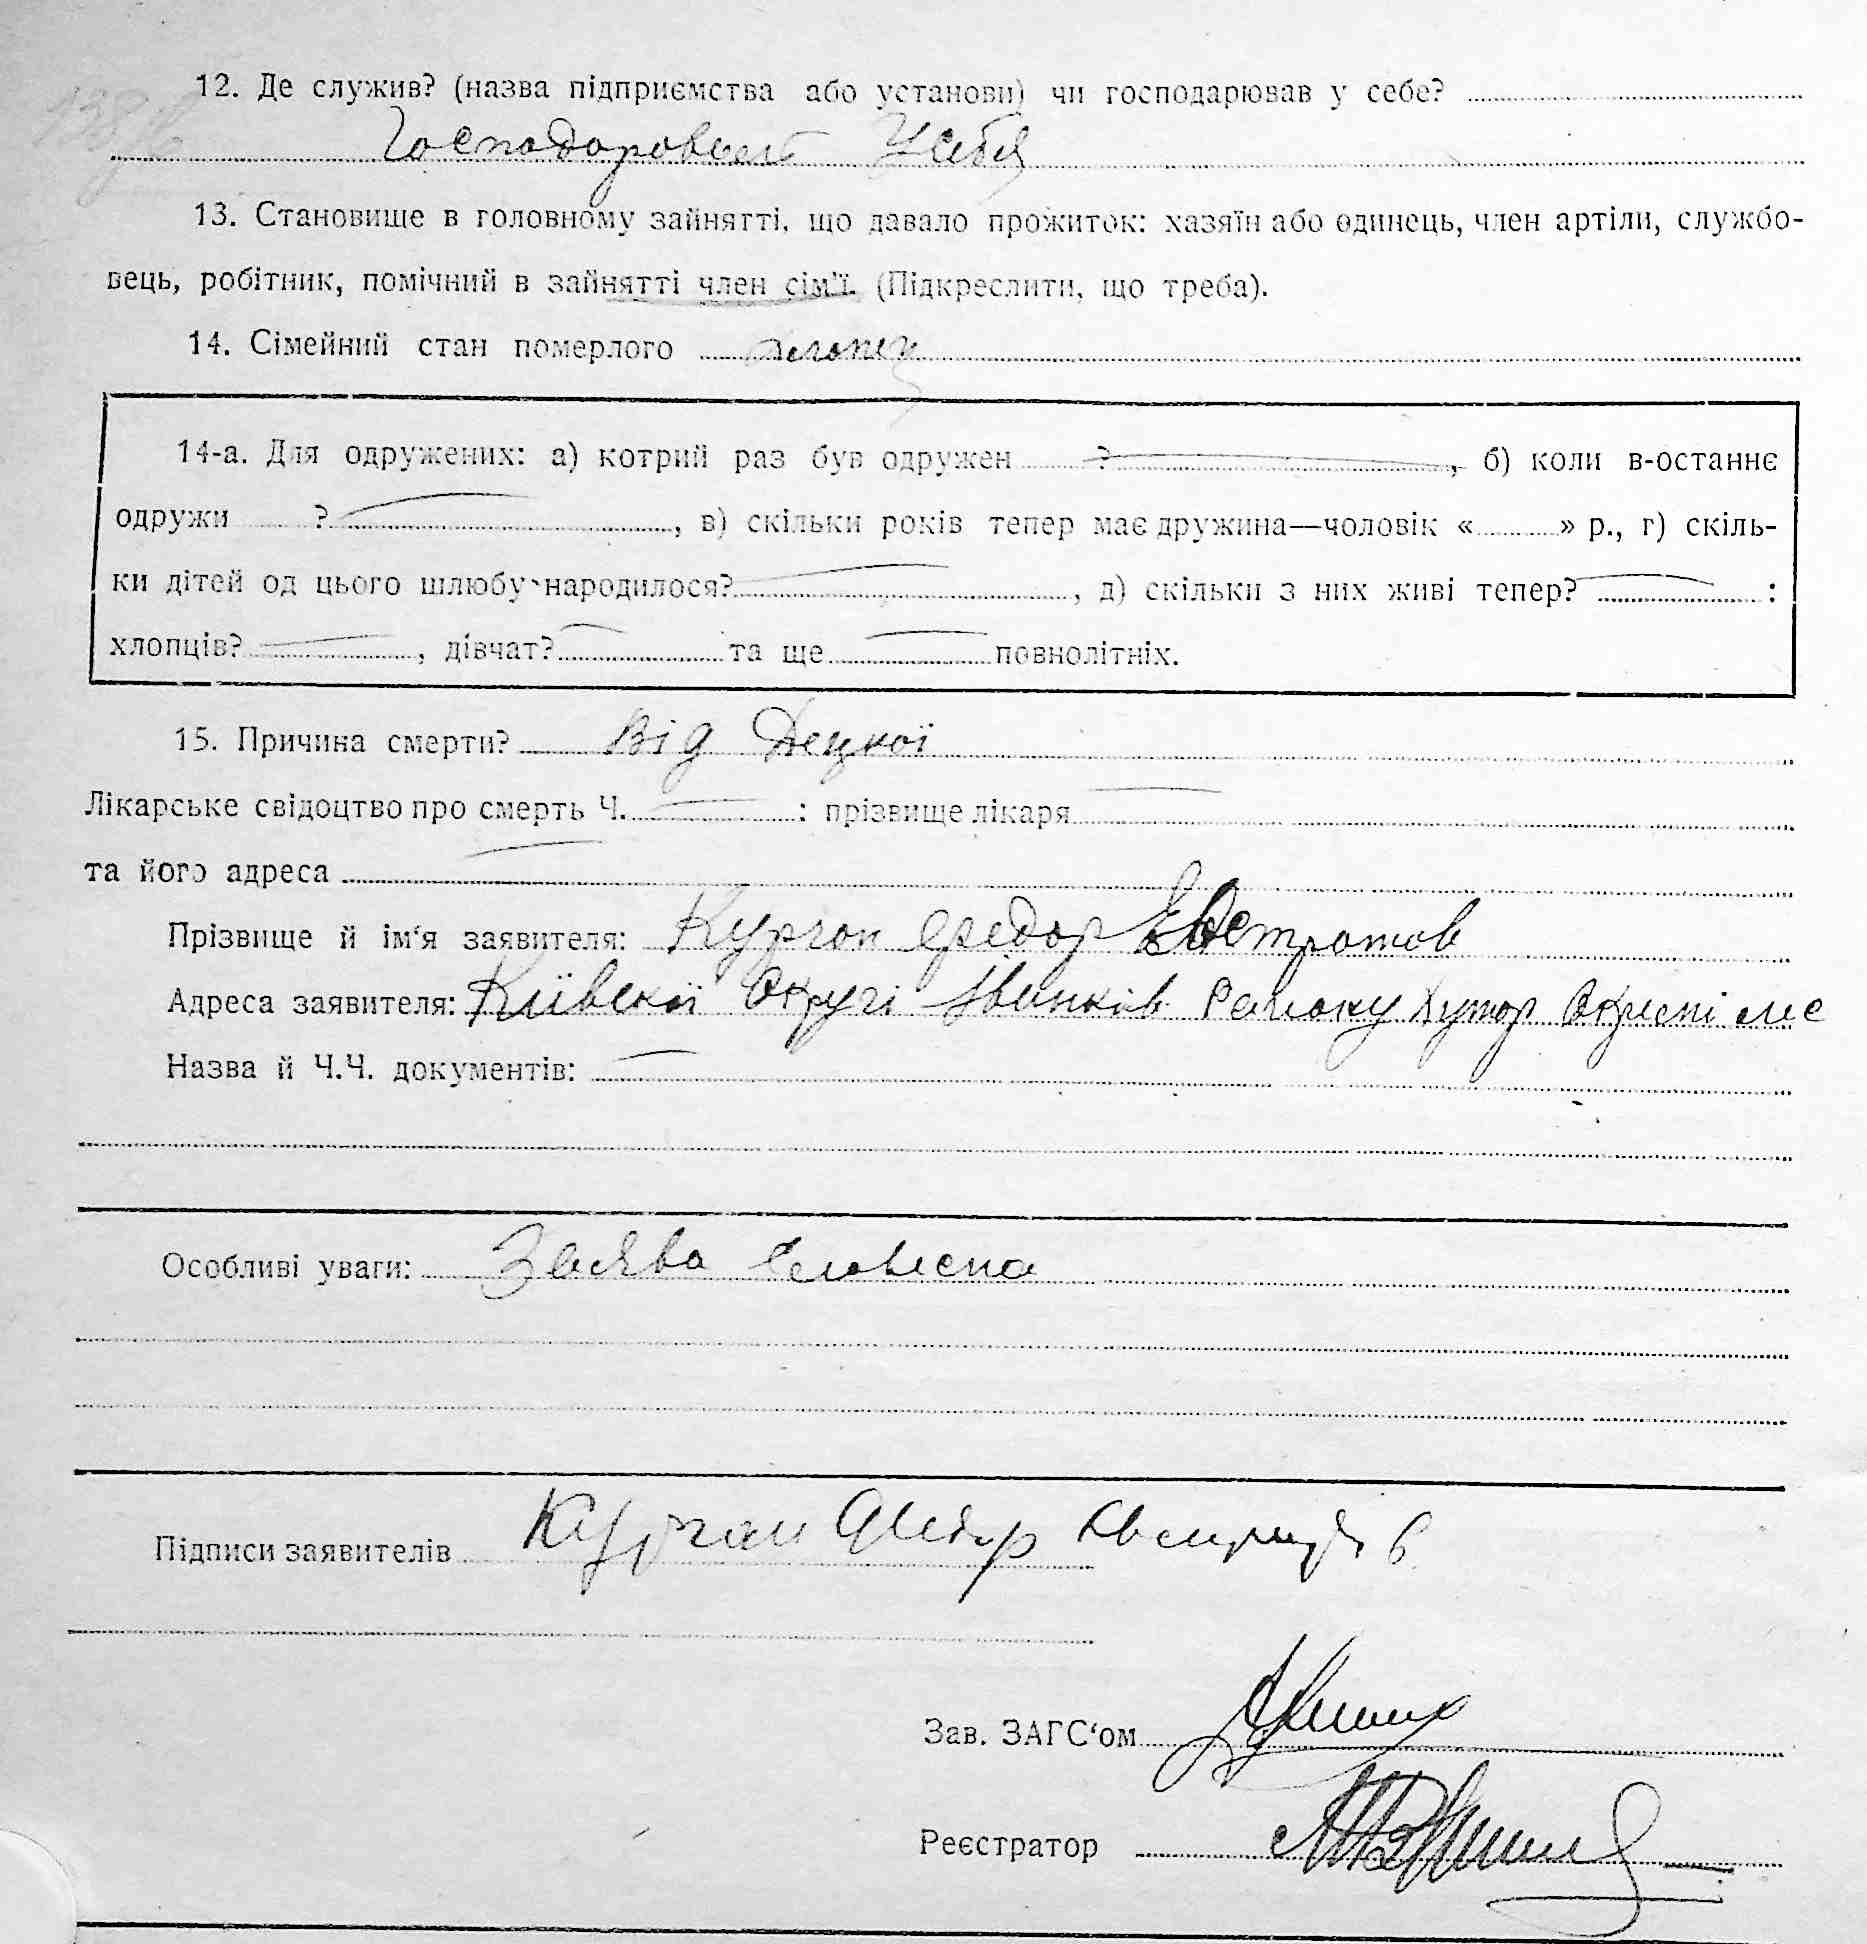 12. Де служив? (назва підприємства або установи) чи господарював у себе?
Господоровват у себя
13. Становище в головному зайнятті, що давало прожиток: хазяїн або одинець, член артіли, службо-
вець, робітник, помічний в зайнятті член сім'ї. (Підкреслити, що треба).
14. Сімейний стан померлого
14-а. Для одружених: а) котрий раз був одружен ?, б) коли в-останнє
одружи ?, в) скільки років тепер має дружина—чоловік «» р., г) скіль-
ки дітей од цього шлюбу народилося?, д) скільки з них живі тепер? :
хлопців?, дівчат? та ще повнолітніх.
15. Причина смерти? Від Децкої
Лікарське свідоцтво про смерть Ч. : прізвище лікаря
та його адреса
Прізвище й ім'я заявителя: Курган Федор Евстротов
Адреса заявителя: Київскої Округі Району Хутор
Назва й Ч.Ч. документів:
Особливі уваги: Заява словесна
Підписи заявителів Курган Федор
Зав. ЗАГС'ом
Реєстратор